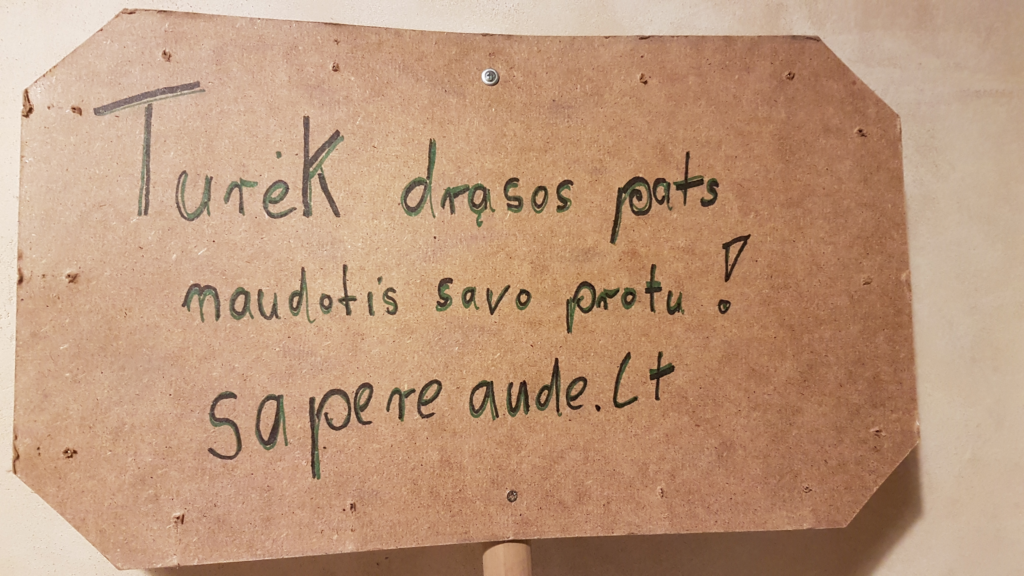 Turėk drąsos pats
naudotis savo protu!
sapere aude.lt